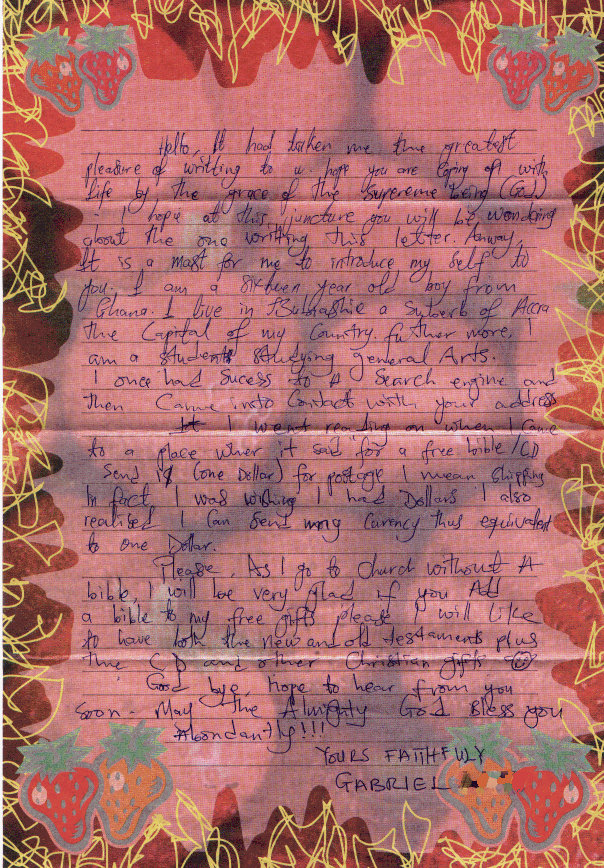 Hello, It had taken me the greatest
pleasure of writting to u. hope you are coping of with
life by the grace of the Supereme being (God)
- I hope at this juncture you will be wondering
about the one worthing this letter. Anway,
It is a mast for me to introduce my self to
you. I am a sixteen year old boy from
Ghana. I live in a Suberb of Accra
the Capital of my Country. further more, I
am a students studying general Arts.
I once had Sucess to A Search engine and
then Came into Contact with your address
It I went reading on when I Came
to a place wher it said for a free bible/CD
Send 1$ (one Dollar) for postage I mean shipping
In fact, I was wishing I had Dollars I also
realised I Can Send my Curency thus equivalent
to one Dollar.
Please, As I go to church without A
bible, I will be very glad if you Add
a bible to my free gifts please I will like
to have both the new and old testaments plus
the CD and other Christian gifts ☺
God bye, hope to hear from you
soon - May the Almighty God Bless you
Abondantly!!!
YOURS FAITHFULY
GABRIEL